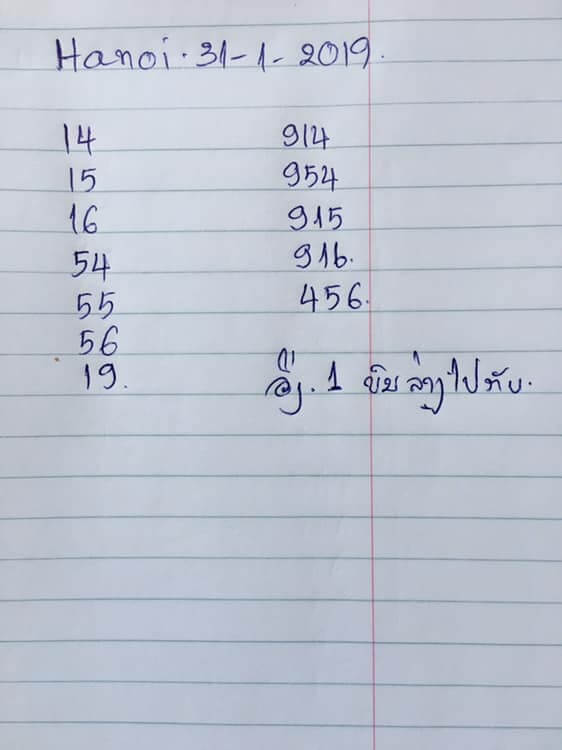 Hanoi. 31-1-2019.
14 914
15 954
16 915
54 916.
55 456.
56
19.
1 ບົນ ລ່າງ ໄປ ກັບ.